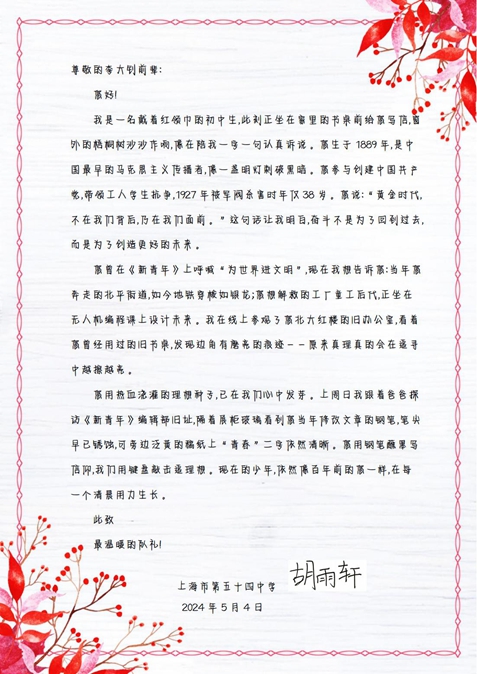 尊敬的李大钊前辈:
您好!
我是一名戴着红领巾的初中生,此刻正坐在家里的书桌前给您写信,窗
外的梧桐树沙沙作响,像在陪我一字一句认真诉说。您生于 1889 年,是中
国最早的马克思主义传播者,像一盏明灯刺破黑暗。您参与创建中国共产
党,带领工人学生抗争,1927 年被军阀杀害时年仅 38 岁。您说:“黄金时代,
不在我们背后,乃在我们面前。”这句话让我明白,奋斗不是为了回到过去,
而是为了创造更好的未来。
您曾在《新青年》上呼喊“为世界进文明”,现在我想告诉您:当年您
奔走的北平街道,如今地铁穿梭如银龙;您想解救的工厂童工后代,正坐在
无人机编程课上设计未来。我在线上参观了您北大红楼的旧办公室,看着
您曾经用过的旧书桌,发现边角有磨亮的痕迹--原来真理真的会在追寻
中越擦越亮。
您用热血浇灌的理想种子,已在我们心中发芽。上周日我跟着爸爸探
访《新青年》编辑部旧址,隔着展柜玻璃看到您当年修改文章的钢笔,笔尖
早已锈蚀,可旁边泛黄的稿纸上“青春”二字依然清晰。您用钢笔蘸墨写
信仰,我们用键盘敲击追理想。现在的少年,依然像百年前的您一样,在每
一个清晨用力生长。
此致
最温暖的队礼!
上海市第五十四中学 胡雨轩
2024 年 5 月 4 日